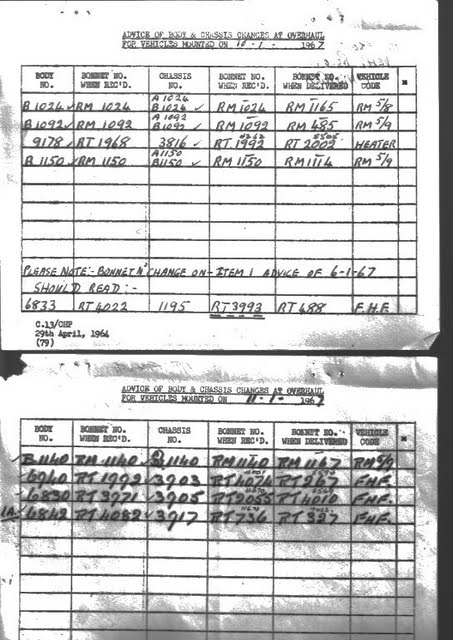 ADVICE OF BODY & CHASSIS CHANGES AT OVERHAUL
FOR VEHICLES MOUNTED ON 10-1- 1967
BODY NO. BONNET NO. WHEN REC'D. CHASSIS NO. BONNET NO. WHEN REC'D. BONNET NO. WHEN DELIVERED VEHICLE CODE *
B1024 ✓ RM 1024 A1024 B1024 ✓ RM 1024 RM 1165 RM 5/8
B1092 ✓ RM 1092 A1092 B1092 ✓ RM 1092 RM 485 RM 5/9
9178 ✓ RT 1968 3816 ✓ RT 1992 RT 2002 HEATER
B1150 ✓ RM 1150 A1150 B1150 ✓ RM 1150 RM 1114 RM 5/9
PLEASE NOTE:- BONNET No CHANGE ON - ITEM 1 ADVICE OF 6-1-67
SHOULD READ:-
6833 RT 4022 1195 RT 3993 RT 488 F.H.F.
C.13/CHP
29th April, 1964
(79)
ADVICE OF BODY & CHASSIS CHANGES AT OVERHAUL
FOR VEHICLES MOUNTED ON 11-1- 1967
BODY NO. BONNET NO. WHEN REC'D. CHASSIS NO. BONNET NO. WHEN REC'D. BONNET NO. WHEN DELIVERED VEHICLE CODE *
✓ B1140 RM 1140 1140 RM 1140 RM 1167 RM 5/9
6940 RT 1992 ✓ 3903 RT 4074 RT 267 F.H.F.
✓ 6830 RT 3771 ✓ 3905 RT 2055 RT 4010 F.H.F.
1A ✓ 6842 RT 4082 ✓ 3917 RT 736 RT 327 F.H.F.